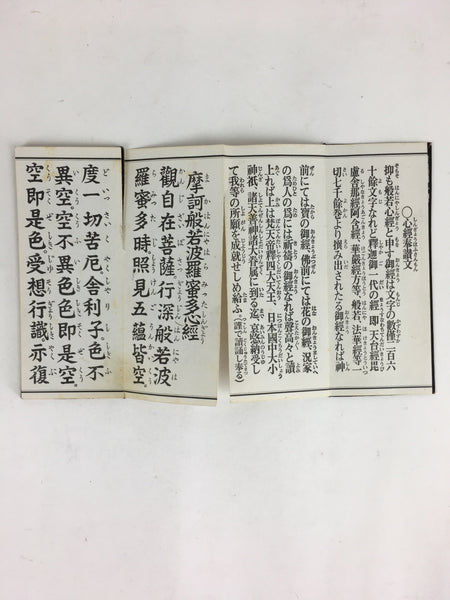 〇心經奉讀文
抑も般若心經と申す御經は文字の數僅二百六
十餘文字なれど釋迦御一代の經、即、天台經毘
盧遮那經阿含經、華嚴經方等、般若、法華經等一
切七千餘巻より撰み出されたる御經なれば神
前にては寶の御經、佛前にては花の御經、況家
の爲人の爲には祈禱の御經なれば聲高々と讀
上れば上は梵天帝釋四大天王、日本國中大小
神祇、諸天善神諸大眷属に到るまで哀愍納受し
て我等の所願を成就せしめ給ふ(謹で讀誦し奉る)
摩訶般若波羅蜜多心經
觀自在菩薩行深般若波
羅蜜多時照見五蘊皆空
度一切苦厄舎利子色不
異空空不異色色即是空
空即是色受想行識亦復